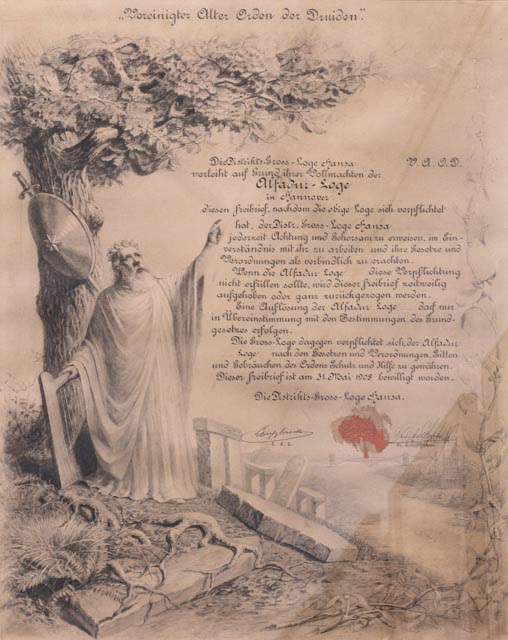 „Vereinigter Alter Orden der Druiden."
Die Distrikts-Gross-Loge Hansa V. A. O. D.
verleiht auf Grund ihrer Vollmachten der
Alfadur-Loge
in Hannover
diesen Freibrief, nachdem die obige Loge sich verpflichtet
hat, der Distr. Gross-Loge Hansa
jederzeit Achtung und Gehorsam zu erweisen, im Ein-
verständnis mit ihr zu arbeiten und ihre Gesetze und
Verordnungen als verbindlich zu erachten.
Wenn die Alfadur Loge diese Verpflichtung
nicht erfüllen sollte, wird dieser Freibrief zeitweilig
aufgehoben oder ganz zurückgezogen werden.
Eine Auflösung der Alfadur Loge darf nur
in Übereinstimmung mit den Bestimmungen des Grund-
gesetzes erfolgen.
Die Gross-Loge dagegen verpflichtet sich, der Alfadur
Loge nach den Gesetzen und Verordnungen, Sitten
und Gebräuchen des Ordens Schutz und Hilfe zu gewähren.
Dieser Freibrief ist am 31. Mai 1908 bewilligt worden.
Die Distrikts-Gross-Loge Hansa.